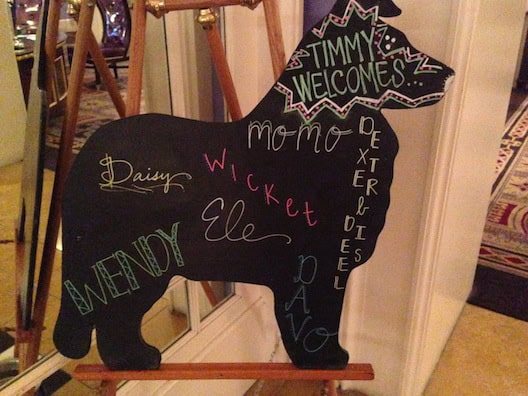 TIMMY
WELCOMES
momo
DEXTER & DIESEL
Daisy
Wicket
Ele
WENDY
DAVO